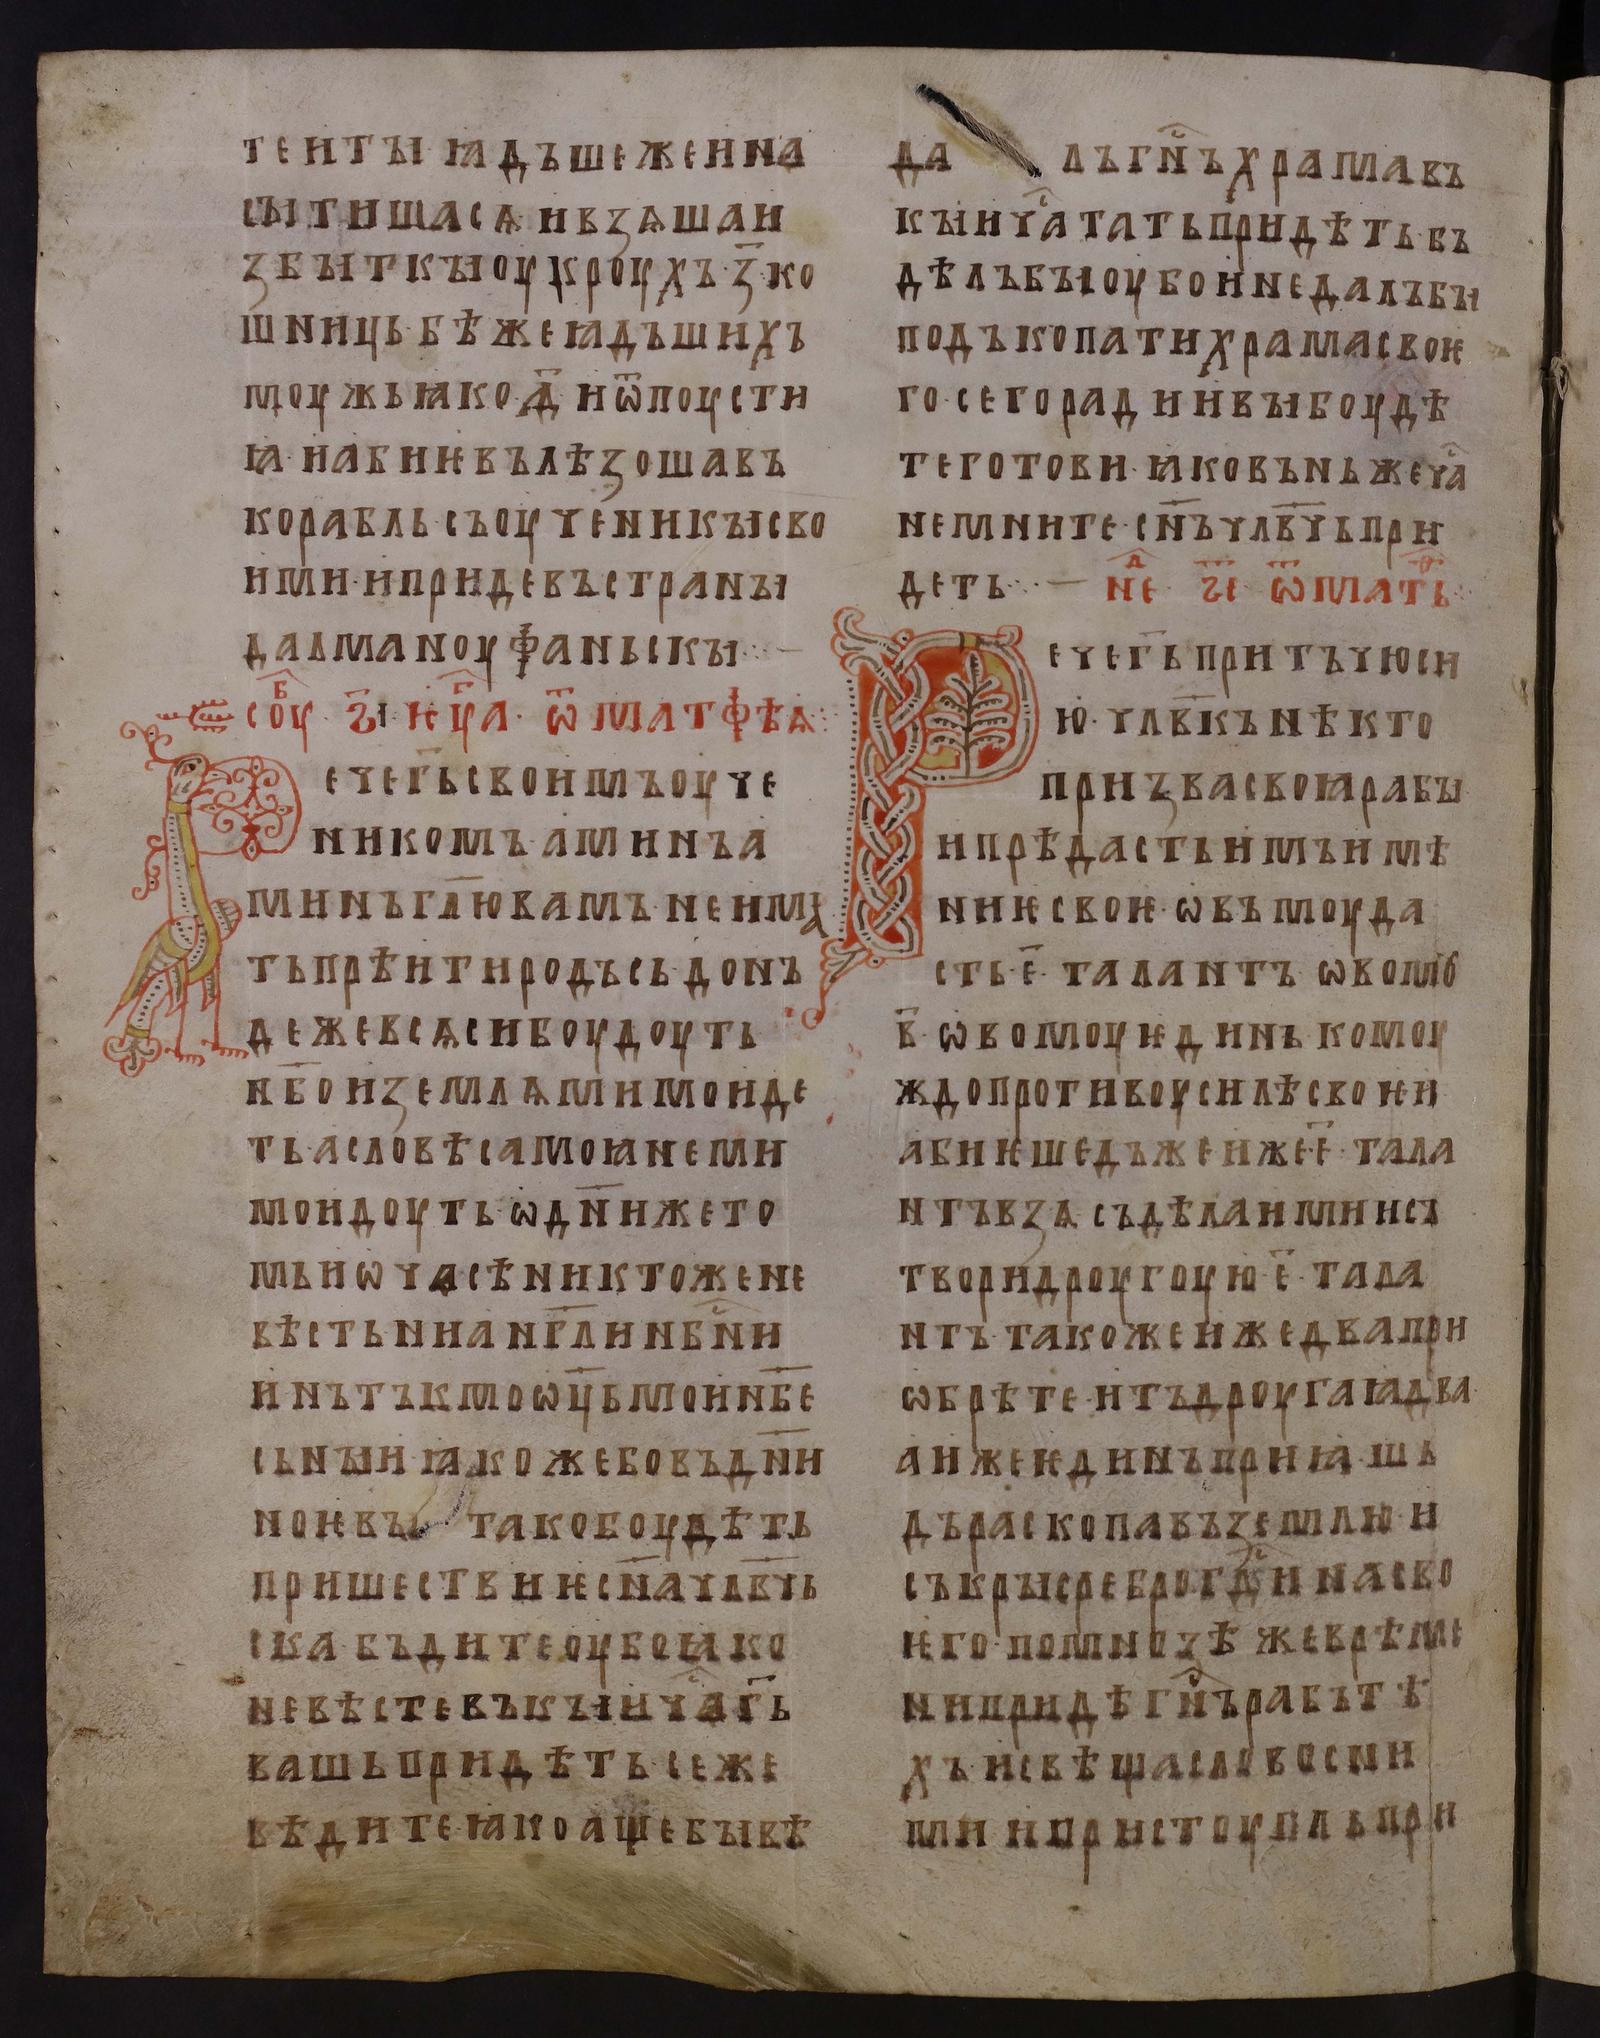 тентꙑ ꙗдъшеженна
сꙑтишасѧ ивзѧшаи
збꙑткꙑоукроухъ·з҃·ко
шниць·бѣжеꙗдъшихъ
моужьꙗко·д҃·и҅ѿпоусти
ꙗ·иабиѥвълѣзошавъ
корабль·съоученикꙑсво
ими·ипридевъстранꙑ
далманоуфаньскꙑ·:·—
соу҃б·з҃і·ѥуа҃г·ѿ матфѣꙗ:·
Рече г҃ьсвоимъоуче
никомъ·аминъа
минъгл҃ювамъ·неима
тьпрѣитиродъсь·донъ
дежевсѧсибоудоуть
нб҃оиземлѧмимоиде
ть·асловѣсамоꙗнеми
моидоуть·ѡдн҃иижето
мьиѡчасѣ·никтожене
вѣстьнианг҃линнбс҃ни
и·нътъкмоѡц҃ьмоинб҃е
сьнꙑи·ꙗкожебовъдн҃и
ноѥвꙑ такобоудѣть
пришествиѥсн҃ачлв҃чь
ска·бъдитеоубоꙗко
невѣстевъкꙑичас҃г҃ь
вашьпридѣть·сеже
вѣдитеꙗкоащебꙑвѣ
да лъгс҃нъхрамавъ
кꙑичас҃татьпридѣть·бъ
дѣлъбꙑоубоинедалъбꙑ
подъкопатихрамасвоѥ
го·сегорадиивꙑбоудѣ
теготови·ꙗковъньжечас҃
немните·сн҃ъчлв҃чьпри
деть·:·— не҃д з҃і ѿматѳ҃ь:·
Речег҃ьпритъчюси
ю·члв҃кънѣкто
призвасвоꙗрабꙑ
ипрѣдастьимъимѣ
ниѥсвоѥ·ѡвъмоуда
сть·е҃·талантъ ѡвомоу
в҃·ѡвомоуѥдинь·комоу
ждопротивоусилѣсвоѥи
абиѥшедъжеиже·е҃·тала
нтъвзѧ·съдѣлаимиисъ
творидроугоую·е҃·тала
нтъ·такожеижедвапри
ѡбрѣте·итъдроугаꙗдва·
аижеѥдинъприꙗ·шь
дъраскопавъземлюи
съкрꙑсреброгс҃динасво
ѥго·помнозѣжеврѣме
нипридѣгс҃нърабътѣ
хъ·исвѣщасловосъни
ми·ипристоупльпри